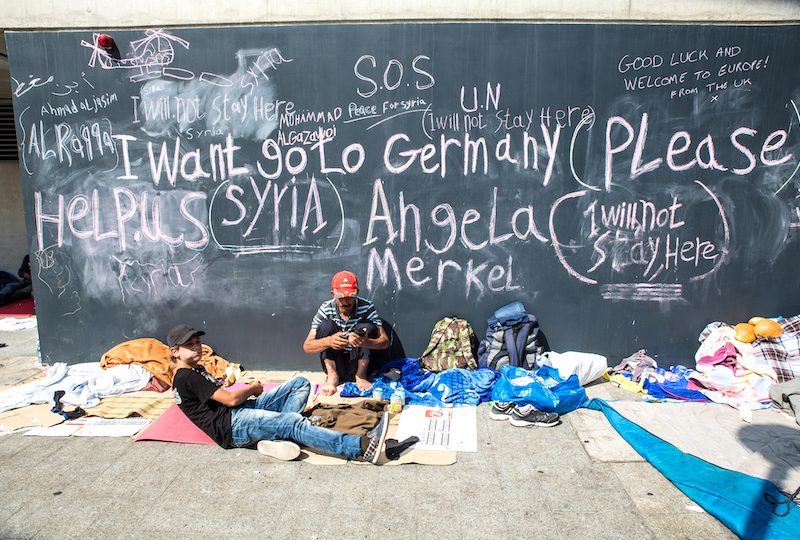 GOOD LUCK AND
WELCOME TO EUROPE!
FROM THE UK
X
S.O.S
Peace For syria
Syria
U.N
(I will not Stay Here)
I will not Stay Here
Syria
MOHAMMAD
ALGAZAWO!
Ahmad ALjasim
(ALRaqqa)
I Want goTo Germany (Please)
HELP.US (SYRIA) Angela
Merkel
(I will not
Stay Here)
Syria